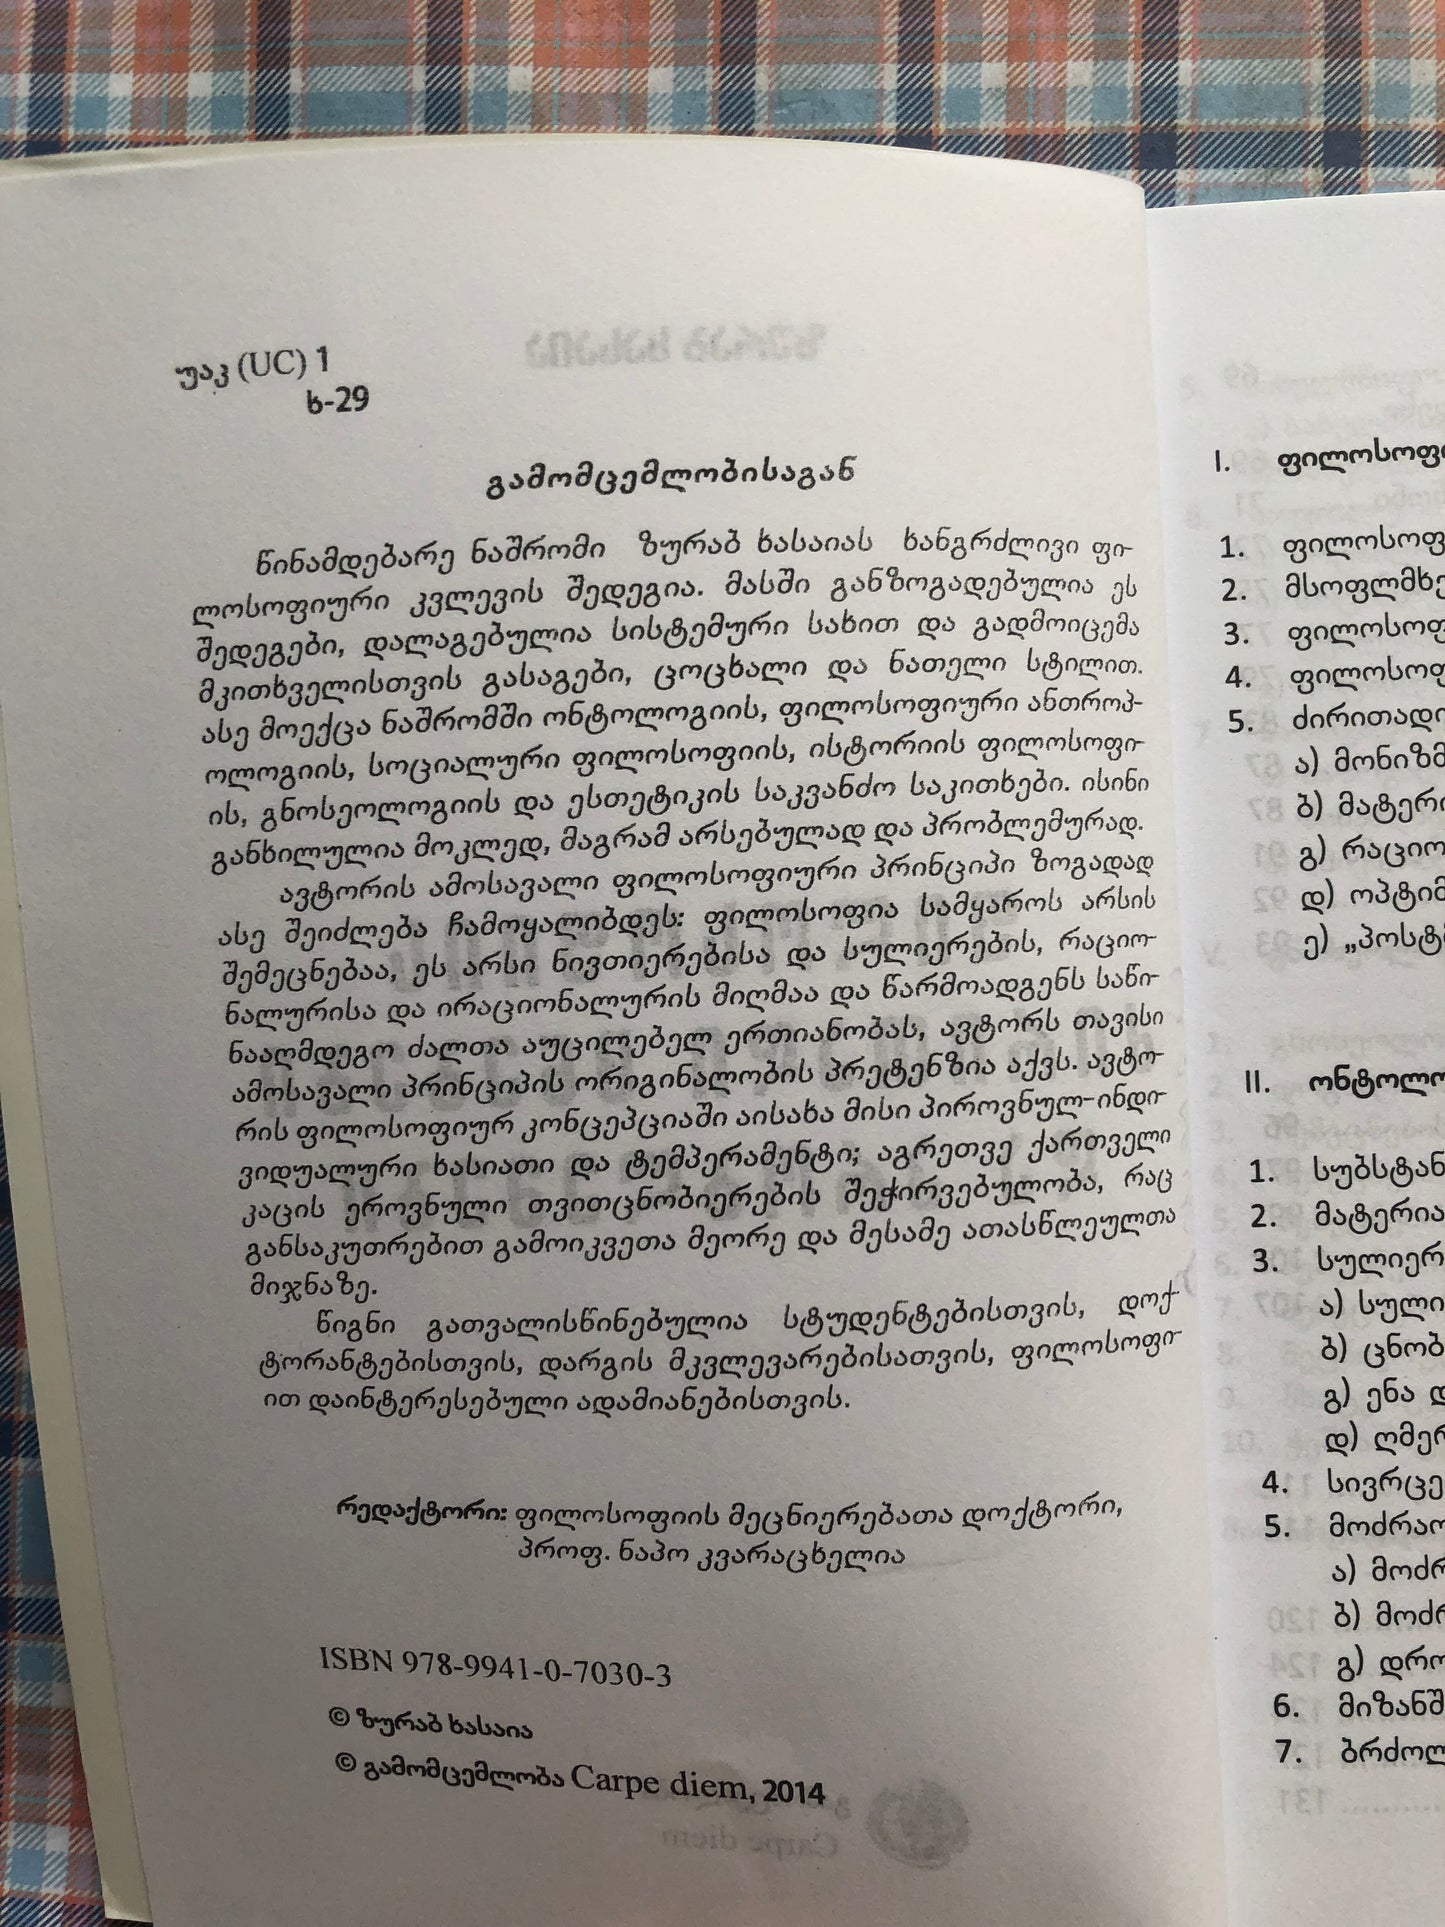 უაკ (UC) 1
ხ-29
გამომცემლობისაგან
წინამდებარე ნაშრომი ზურაბ ხასაიას ხანგრძლივი ფი-
ლოსოფიური კვლევის შედეგია. მასში განზოგადებულია ეს
შედეგები, დალაგებულია სისტემური სახით და გადმოიცემა
მკითხველისთვის გასაგები, ცოცხალი და ნათელი სტილით.
ასე მოექცა ნაშრომში ონტოლოგიის, ფილოსოფიური ანთროპ-
ოლოგიის, სოციალური ფილოსოფიის, ისტორიის ფილოსოფი-
ის, გნოსეოლოგიის და ესთეტიკის საკვანძო საკითხები. ისინი
განხილულია მოკლედ, მაგრამ არსებულად და პრობლემურად.
ავტორის ამოსავალი ფილოსოფიური პრინციპი ზოგადად
ასე შეიძლება ჩამოყალიბდეს: ფილოსოფია სამყაროს არსის
შემეცნებაა, ეს არსი ნივთიერებისა და სულიერების, რაციო-
ნალურისა და ირაციონალურის მიღმაა და წარმოადგენს საწი-
ნააღმდეგო ძალთა აუცილებელ ერთიანობას, ავტორს თავისი
ამოსავალი პრინციპის ორიგინალობის პრეტენზია აქვს. ავტო-
რის ფილოსოფიურ კონცეპციაში აისახა მისი პიროვნულ-ინდი-
ვიდუალური ხასიათი და ტემპერამენტი; აგრეთვე ქართველი
კაცის ეროვნული თვითცნობიერების შეჭირვებულობა, რაც
განსაკუთრებით გამოიკვეთა მეორე და მესამე ათასწლეულთა
მიჯნაზე.
წიგნი გათვალისწინებულია სტუდენტებისთვის, დოქ-
ტორანტებისთვის, დარგის მკვლევარებისათვის, ფილოსოფი-
ით დაინტერესებული ადამიანებისთვის.
რედაქტორი: ფილოსოფიის მეცნიერებათა დოქტორი,
პროფ. ნაპო კვარაცხელია
ISBN 978-9941-0-7030-3
© ზურაბ ხასაია
© გამომცემლობა Carpe diem, 2014
I. ფილოსოფი
1. ფილოსოფ
2. მსოფლმხე
3. ფილოსოფ
4. ფილოსოფ
5. ძირითადი
ა) მონიზმ
ბ) მატერი
გ) რაციო
დ) ოპტიმ
ე) „პოსტმ
II. ონტოლო
1. სუბსტან
2. მატერია
3. სულიერ
ა) სული
ბ) ცნობ
გ) ენა დ
დ) ღმერ
4. სივრცე
5. მოძრაო
ა) მოძრ
ბ) მოძრ
გ) დრო
6. მიზანშ
7. ბრძოლ